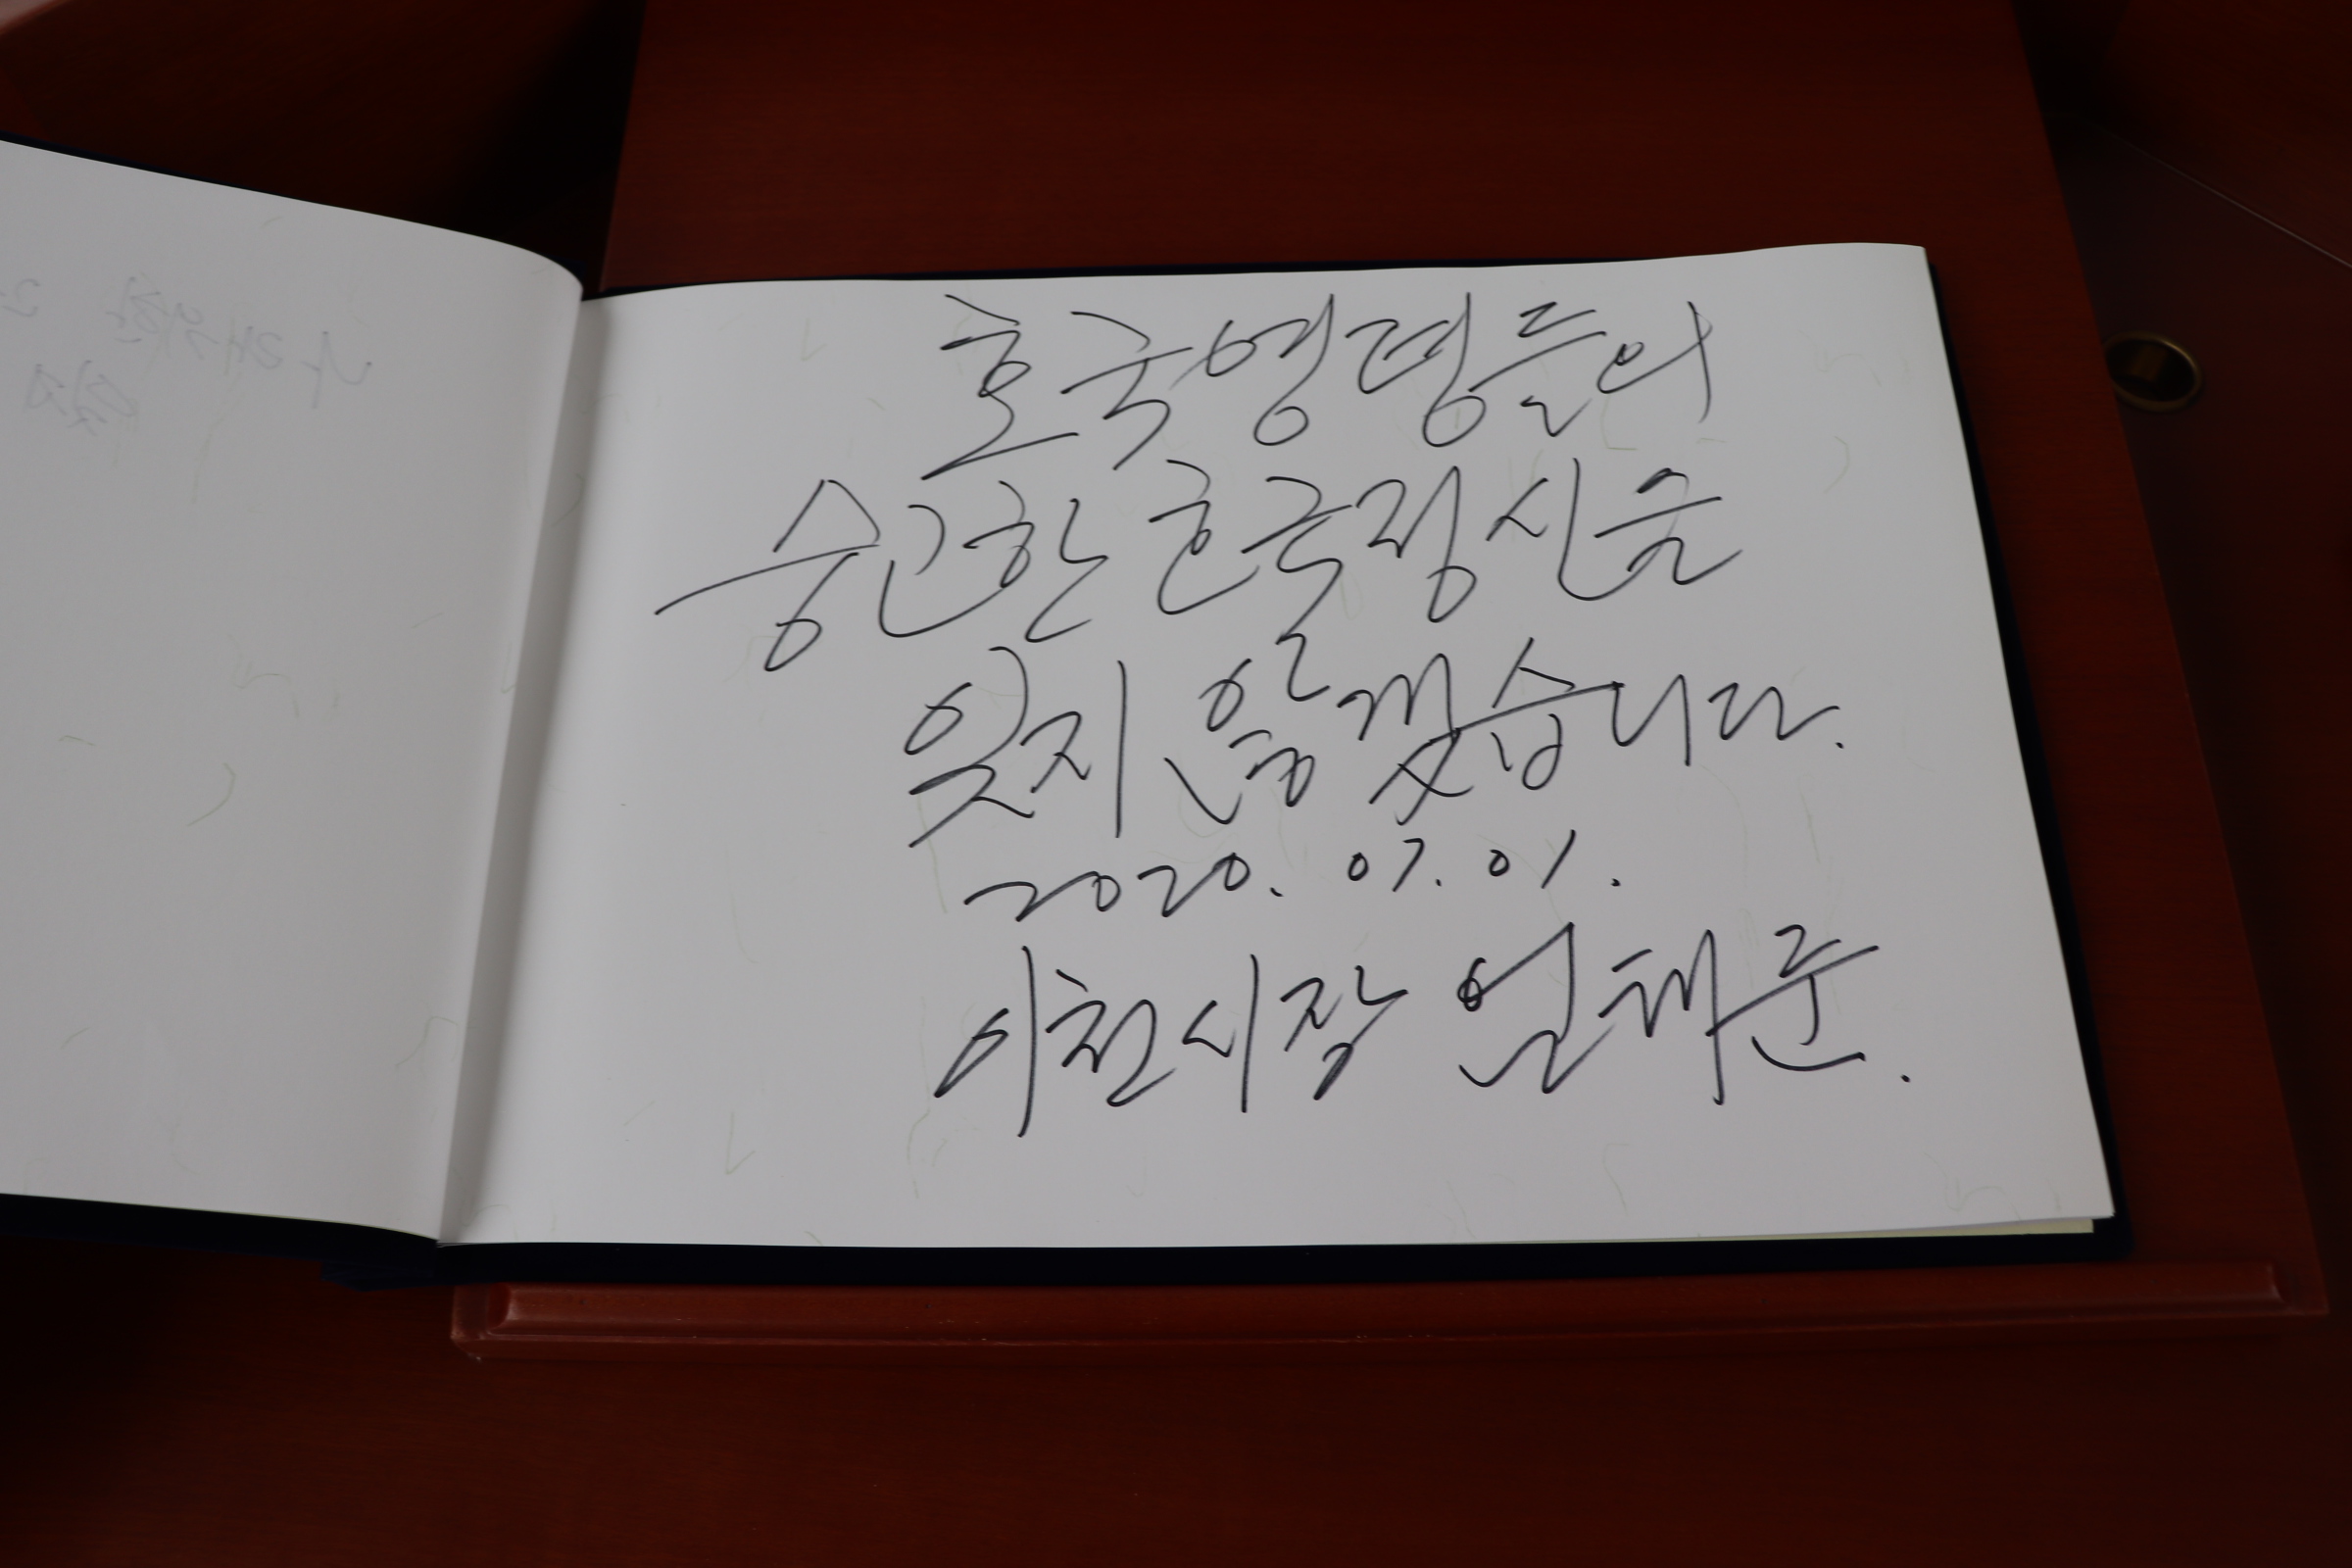 호국영령들의
숭고한 호국정신을
잊지 않겠습니다.
2020. 07. 01.
이천시장 엄태준.